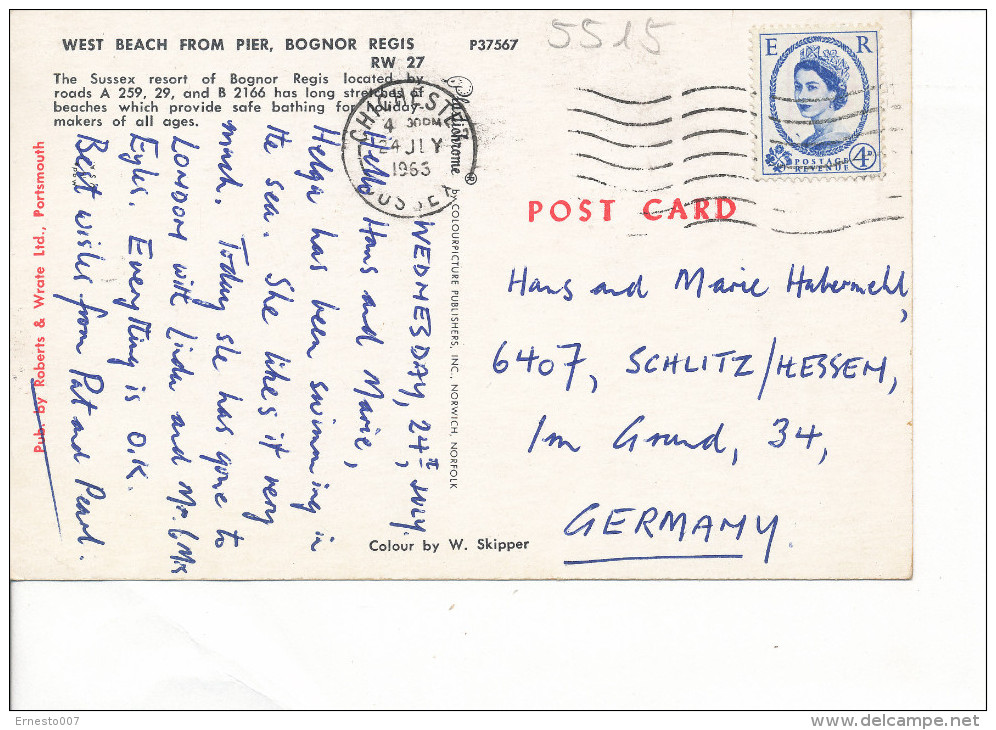 WEST BEACH FROM PIER, BOGNOR REGIS
P37567
RW 27
The Sussex resort of Bognor Regis located by
roads A 259, 29, and B 2166 has long stretches of
beaches which provide safe bathing for holiday-
makers of all ages.
5515
CHICHESTER
4 30PM
24 JLY
1963
SUSSEX
E R
POSTAGE
REVENUE
4D
Plastichrome ®
by COLOURPICTURE PUBLISHERS, INC., NORWICH, NORFOLK
POST CARD
WEDNESDAY, 24TH JULY.
Hello Hans and Marie,
Helga has been swimming in
the sea. She likes it very
much. Today she has gone to
LONDON with Linda and Mr. & Mrs
Eyles. Everything is O.K.
Best wishes from Pat and Pearl.
Hans and Marie Habermehl,
6407, SCHLITZ/HESSEN,
Im Grund, 34,
GERMANY.
Pub. by Roberts & Wrate Ltd., Portsmouth
Colour by W. Skipper
Ernesto007
delcampe.net